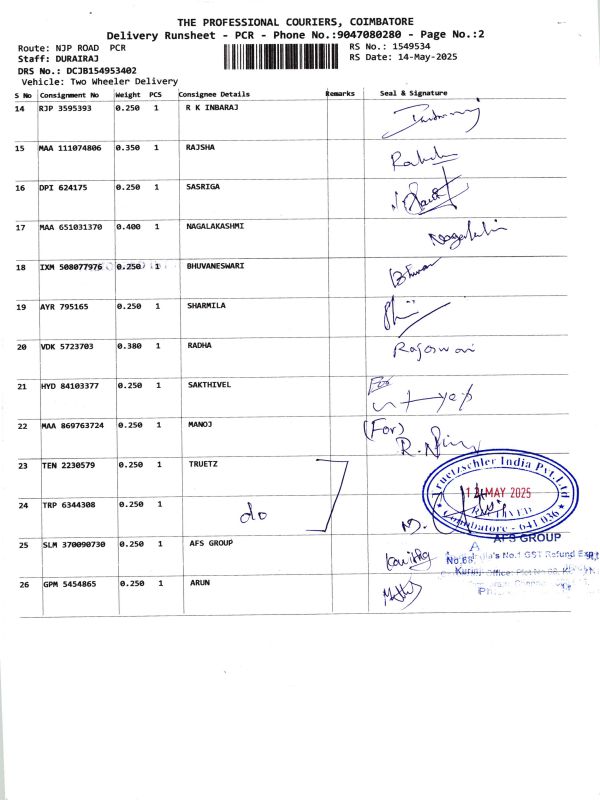 THE PROFESSIONAL COURIERS, COIMBATORE
Delivery Runsheet - PCR - Phone No.:9047080280 - Page No.:2
Route: NJP ROAD PCR RS No.: 1549534
Staff: DURAIRAJ RS Date: 14-May-2025
DRS No.: DCJB154953402
Vehicle: Two Wheeler Delivery
S No Consignment No Weight PCS Consignee Details Remarks Seal & Signature
14 RJP 3595393 0.250 1 R K INBARAJ
15 MAA 111074806 0.350 1 RAJSHA
16 DPI 624175 0.250 1 SASRIGA
17 MAA 651031370 0.400 1 NAGALAKASHMI
18 IXM 508077976 0.250 1 BHUVANESWARI
19 AYR 795165 0.250 1 SHARMILA
20 VDK 5723703 0.380 1 RADHA
21 HYD 84103377 0.250 1 SAKTHIVEL
22 MAA 869763724 0.250 1 MANOJ (For)
23 TEN 2230579 0.250 1 TRUETZ
Truetzschler India Pvt. Ltd
MAY 2025
Coimbatore - 641 036
24 TRP 6344308 0.250 1 do
25 SLM 370090730 0.250 1 AFS GROUP
AFS GROUP
India's No.1 GST Refund
No.68,
26 GPM 5454865 0.250 1 ARUN